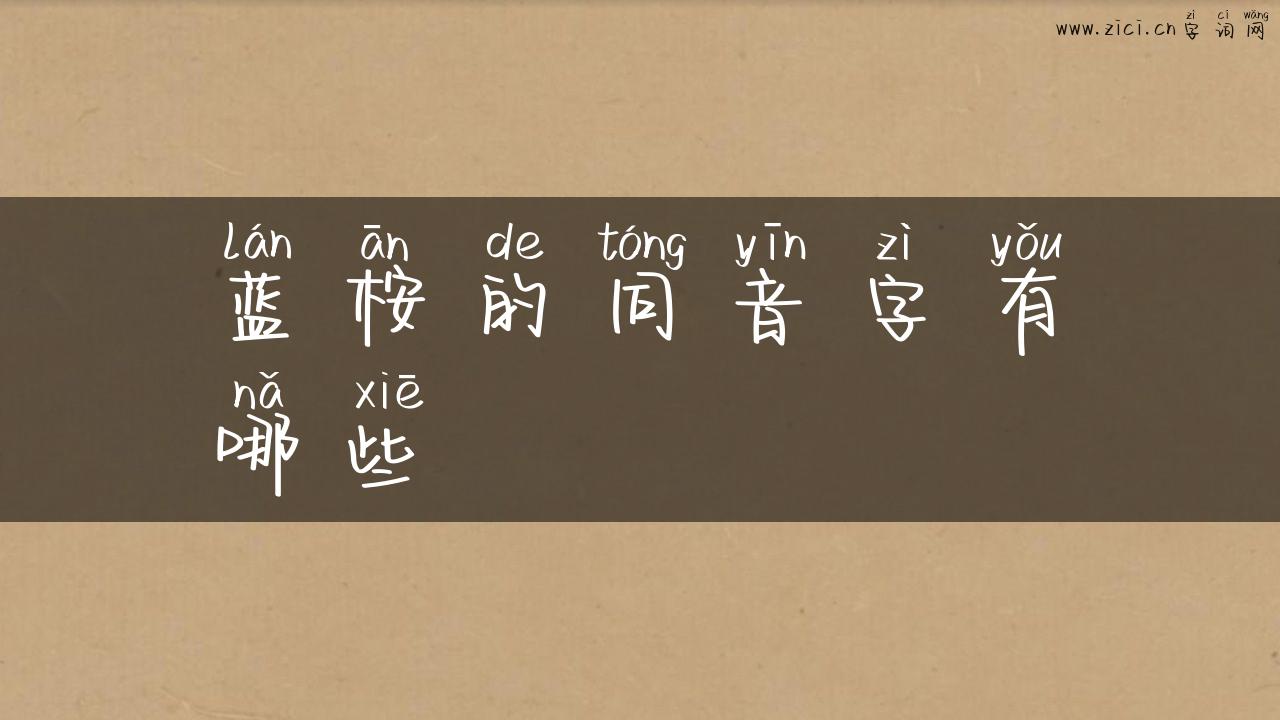 zì cí wǎng
www.zici.cn 字 词 网
lán ān de tóng yīn zì yǒu
蓝 桉 的 同 音 字 有
nǎ xiē
哪 些